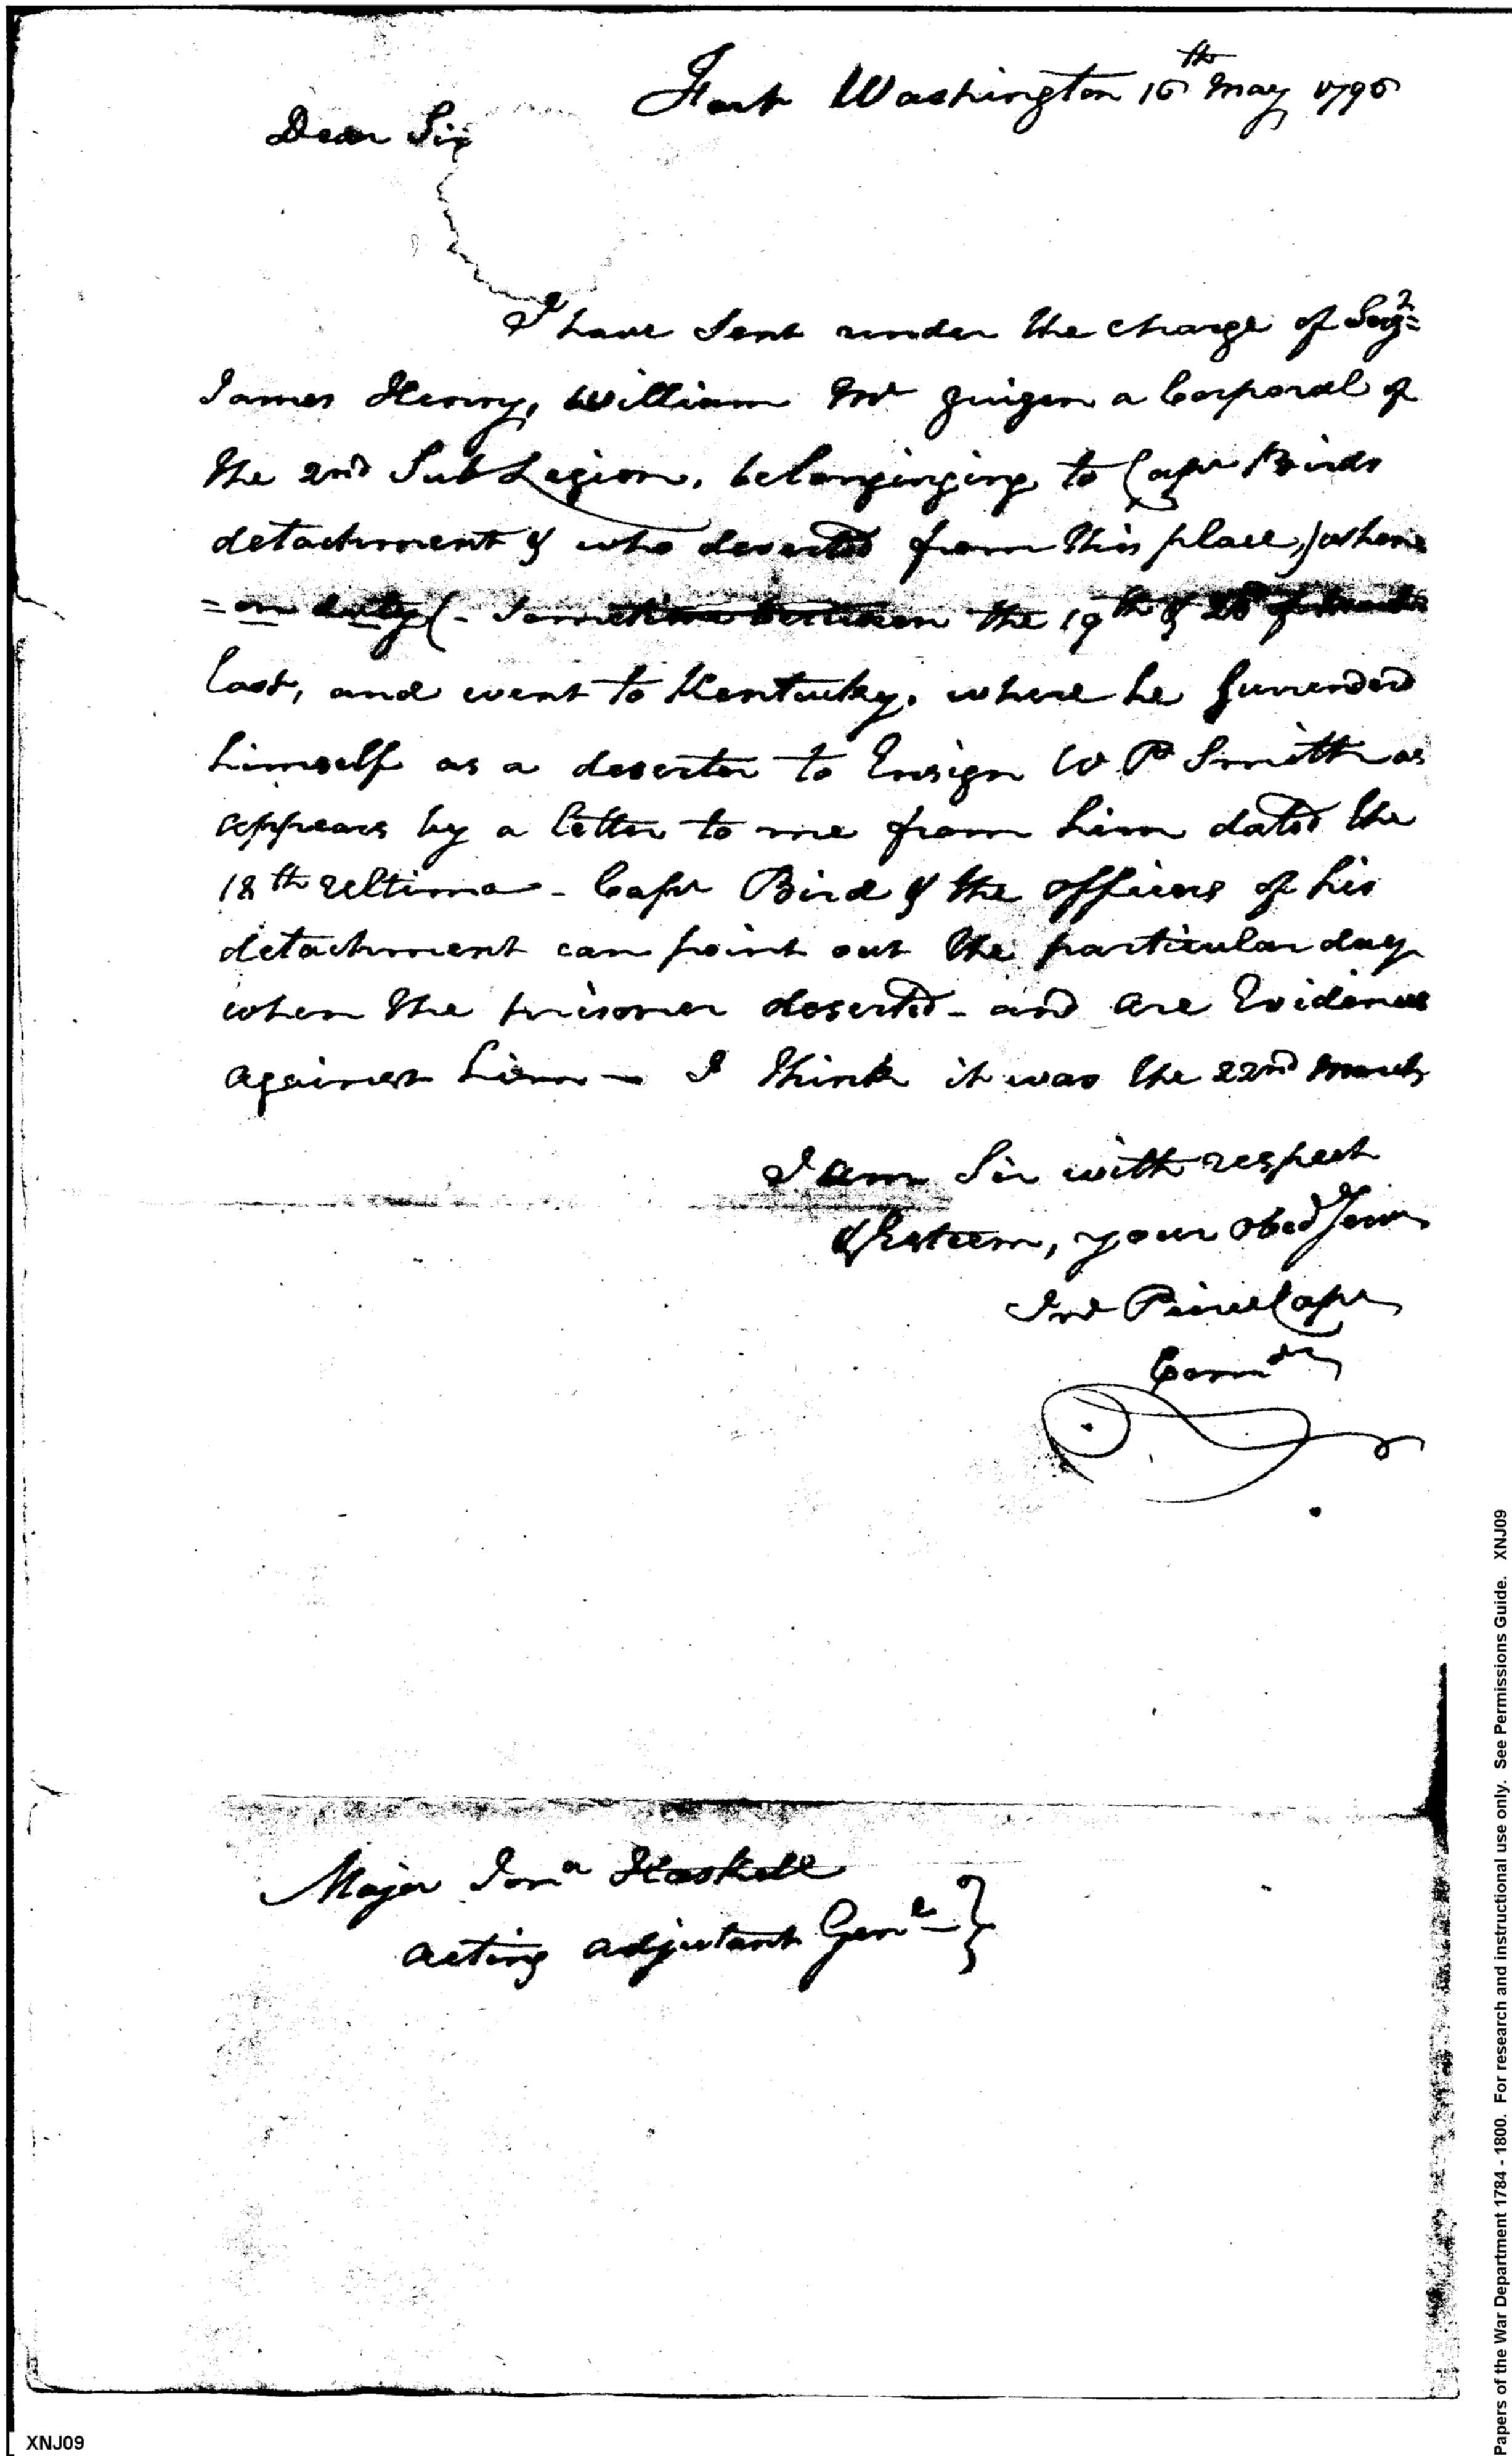 Fort Washington 16th May 1796
Dear Sir
I have Sent under the charge of
James Henry, William Mc Guigen a Corporal of
the 2nd Sub Legion, belonginging to Capt Birds
detachment & who deserted from this place, ) when
= on duty ( - Sometime between the 19th & of March
last, and went to Kentucky, where he Surrendred
himself as a deserter to Ensign W P Smith as
appears by a letter to me from him dated the
18th Ultimo - Capt Bird & the officers of his
detachment can point out the particular day
when the prisoner deserted - and are Evidences
against him - I think it was the 22nd March
I am Sir with respect
& Esteem, your Obed Serv
Jno Pierce Capt
Comdt
Major Jona Haskell
acting adjutant Genl }
Papers of the War Department 1784 - 1800. For research and instructional use only. See Permissions Guide. XNJ09
XNJ09